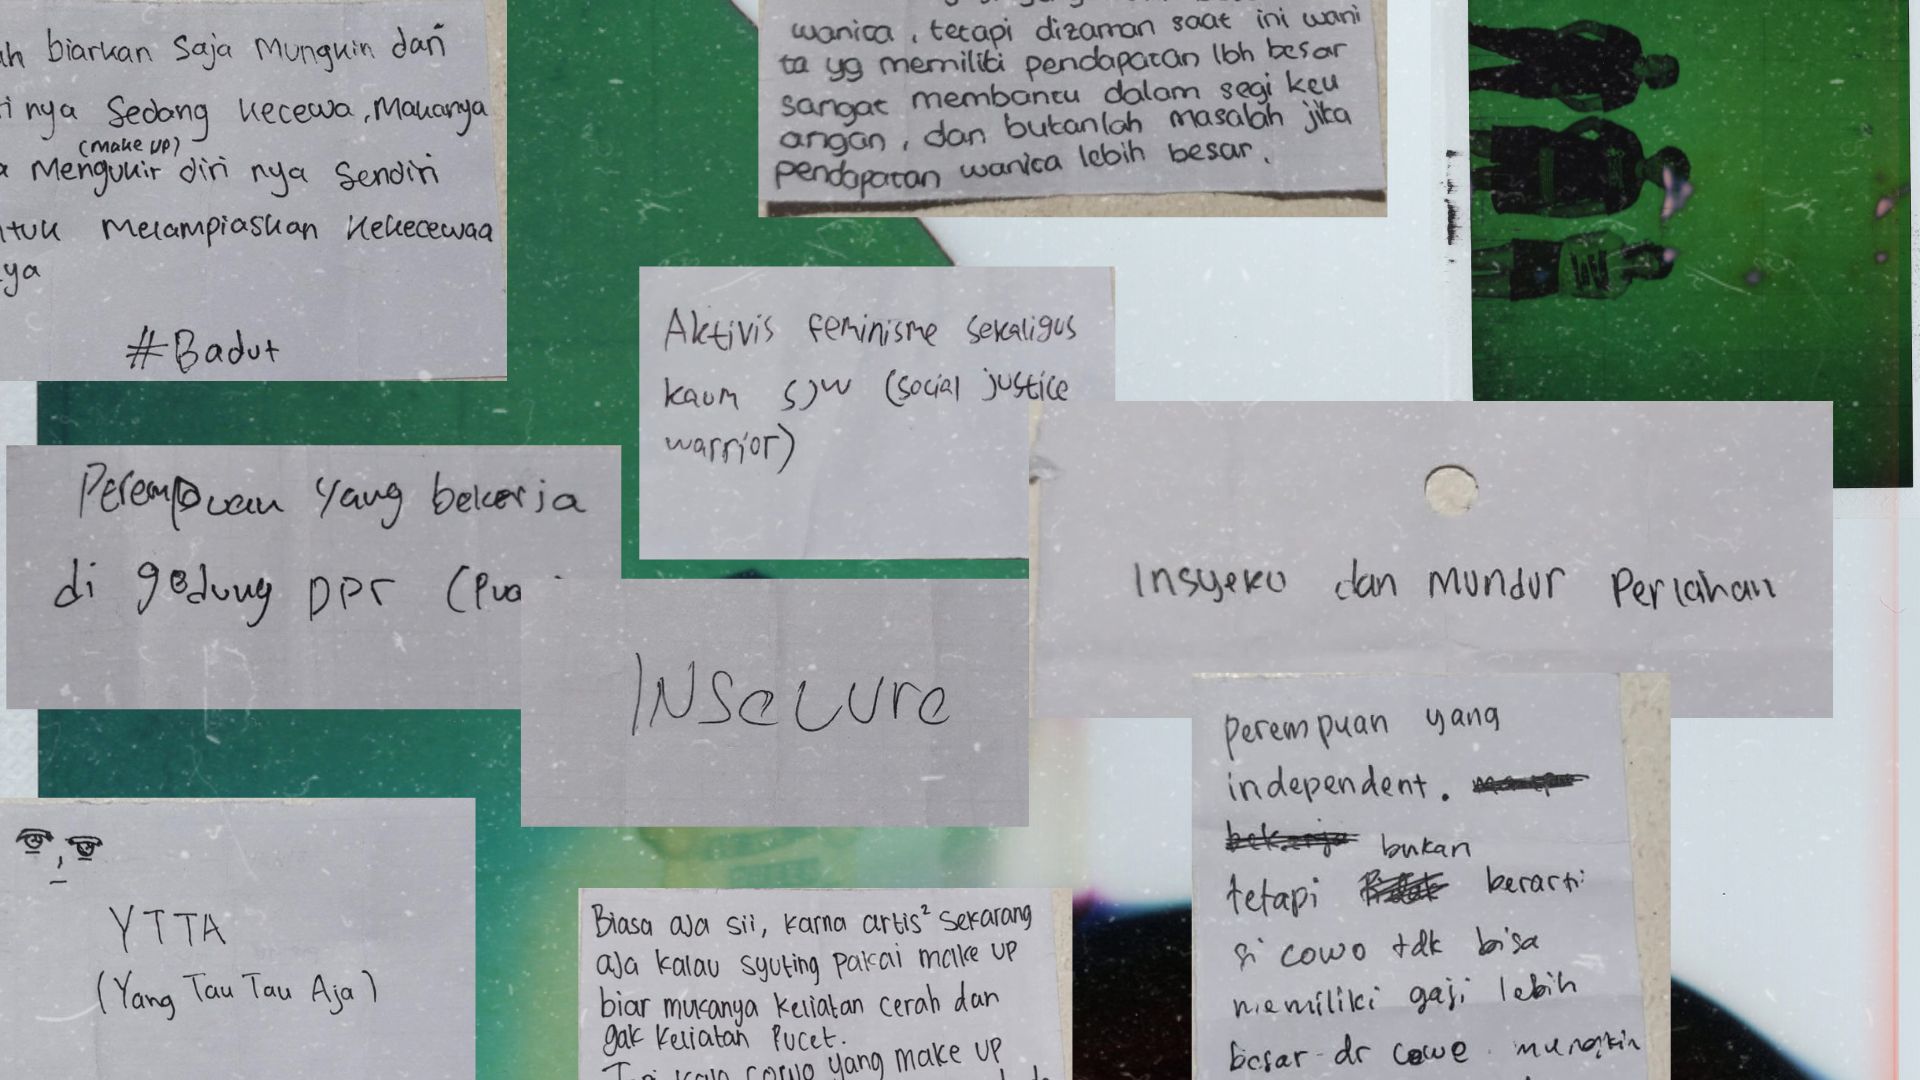 biarkan saja mungkin dari
nya sedang kecewa, makanya
(make up)
mengukir diri nya sendiri
melampiaskan kekecewaa
ya
#Badut
wanita, tetapi dizaman saat ini wani
ta yg memiliki pendapatan lbh besar
sangat membantu dalam segi keu
angan, dan bukanlah masalah jika
pendapatan wanita lebih besar.
Aktivis feminisme sekaligus
kaum sjw (social justice
warrior)
Perempuan yang bekerja
di gedung DPR (Pua
Insyeku dan mundur perlahan
INSecure
perempuan yang
independent.
bukan
tetapi berarti
si cowo tdk bisa
memiliki gaji lebih
besar dr cowe. mungkin
YTTA
(Yang Tau Tau Aja)
Biasa aja sii, karna artis² sekarang
aja kalau syuting pakai make up
biar mukanya keliatan cerah dan
gak keliatan pucet.
cowo yang make up